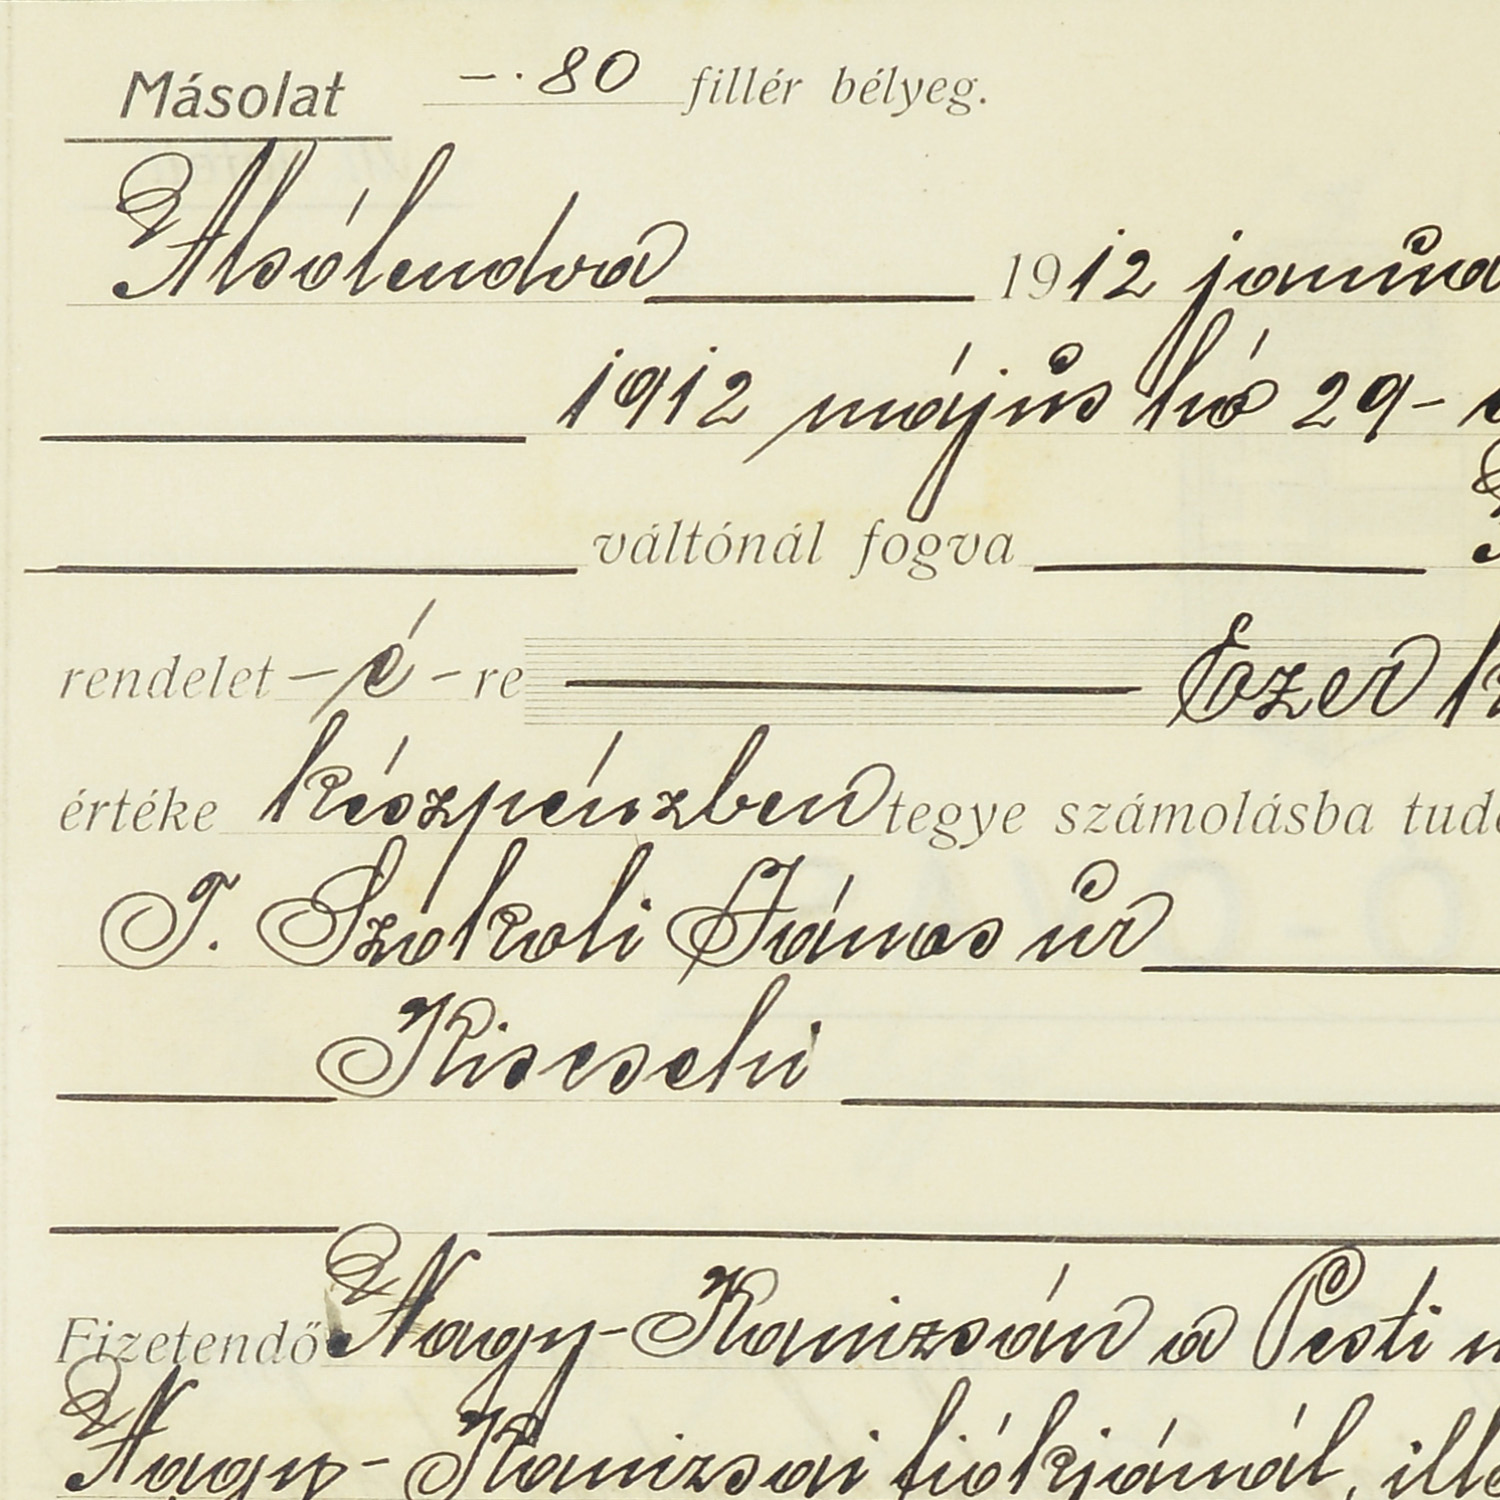 Másolat —·80 fillér bélyeg.
Alsólendva 1912 janua
1912 május hó 29-
váltónál fogva
rendelet –é–re Ezer k
értéke készpénzben tegye számolásba tud
T. Szokoli János úr
Kiscsehi
Fizetendő Nagy-Kanizsán a Pesti
Nagy-Kanizsai fiókjánál, ill